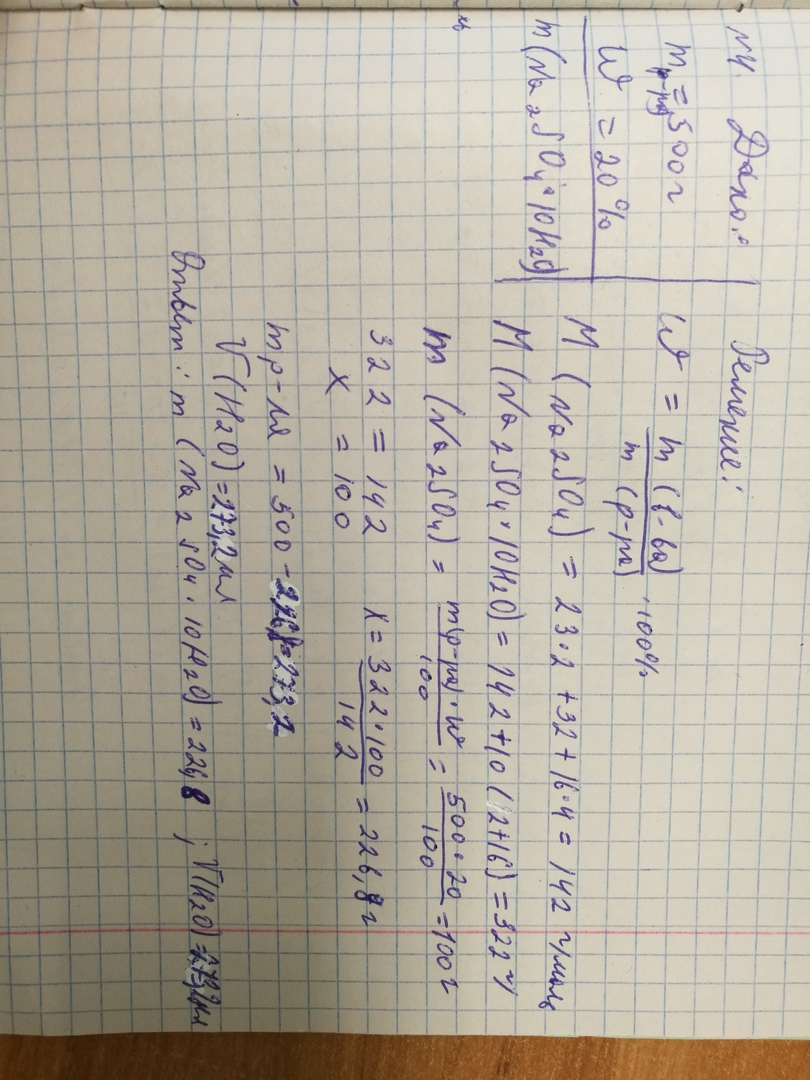 N4. Дано:
m р-ра = 500 г
W = 20%
m (Na2SO4·10H2O)
Решение:
W = m (в-ва) / m (р-ра) ·100%
M (Na2SO4) = 23·2+32+16·4 = 142 г/моль
M (Na2SO4·10H2O) = 142+10(2+16)=322 г/
моль
m (Na2SO4) = m(р-ра)·W / 100 = 500·20 / 100 =100 г
322 = 142
x = 100
x = 322·100 / 142 = 226,8 г
mр-ля = 500-226,8=273,2
V(H2O)=273,2 мл
Ответ: m (Na2SO4·10H2O)=226,8 ; V(H2O)=273,2 мл